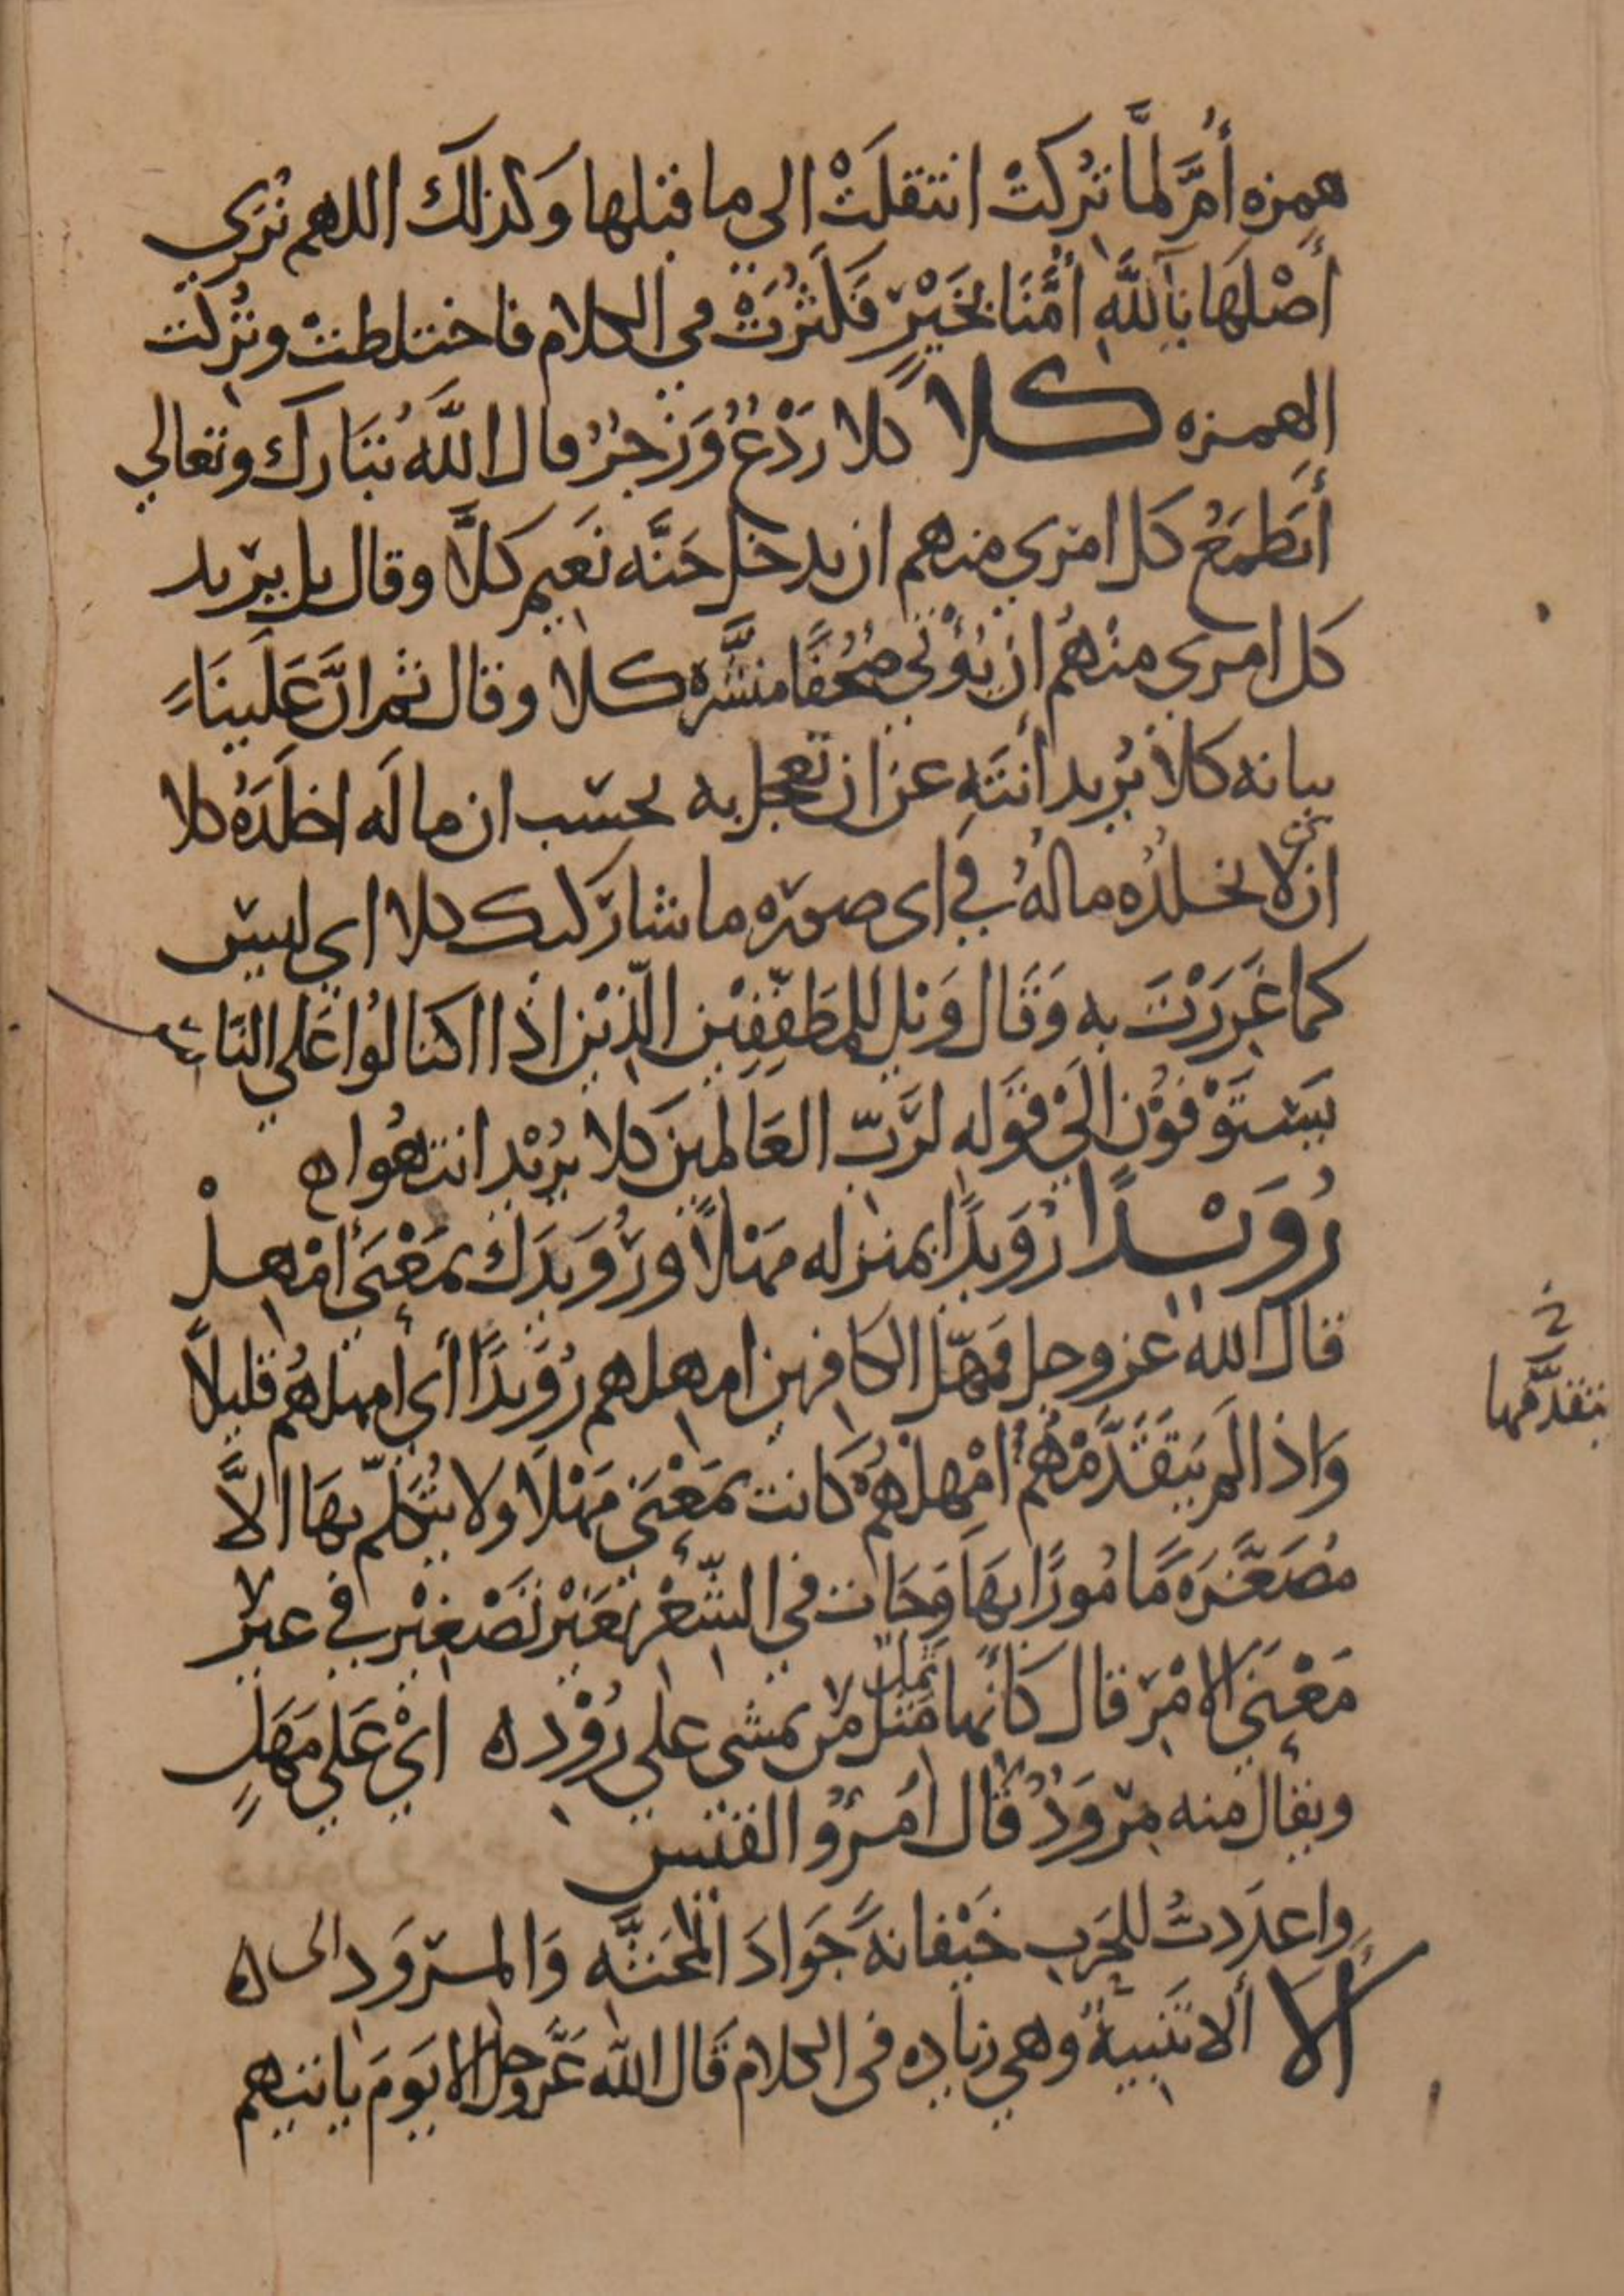 همزه أمَّ لمَّا تُركتْ انتقلَتْ الي ما قبلها وَكذلك اللهم نُرَي
أصْلَهَا يَاَللَّهِ أُمَّنَا بخَيْرٍ فَكَثُرَتْ في الكلام فاختلطتْ وتُركت
الهمزه كلا كلا رَدْعٌ وَزَجْرٌ قال اللَّهُ تَبَارك وتعالي
أيَطمَعُ كل امري منهم ان يدخل جَنَّه نَعيم كَلَّا وقال بل يريد
كل امري منْهُم ان يُؤْتي صُحُفًا منَشَّره كلا وقال ثم انَّ عَلَينَا
بيانه كلا يُريد انتَهِ عن ان تعجل به يحسب ان ما لَه اخلَدَهُ كلا
اي لا يخلدُه مالهُ في اي صوره ما شا ركبك كلا اي ليس
كما غَرَرْتَ به وَقَال وَيْل للمطَفِّفِيْن الّذيْن اذَا اكتالُوا عَلي النَّاس
يَستَوْفُوْن الَيْ قَوله لرَبّ العَالمينَ كلا يُرْيْد انتهُوا ه
رُوَيْدًا رُوَيدًا بمنزله مَهْلًا ورُوَيدَك بمَعْنَي أمْهلْ
قال الله عز وجل فمَهّل الكافرين امهلهم رُوَيدًا أي امهلهُم قليلًا
وَاذا لم يَتقَدَّمْهُمْ أمْهلْهُم كَانت بمَعْنَي مَهْلًا ولا يُتكَلّم بهَا الاَّ
مُصَغَّرَه مَامُورًا بهَا وَجَات في الشّعْر بغَيْر تَصْغيْر في غير
مَعْنَي الامْر قال كَأنها مثل من يمشي علي رُوْد ه ايْ عَلي مَهَلٍ
ويقال منه مِرْوَدٌ قال امرُؤُ القيس
واعدَدتُ للحَرب خَيْفانَهً جَوادَ المَحَثَّه وَالمرْوَد الى ه
ألا ألا تَنبيهٌ وهي زياده في الكلام قَال الله عَزَّوجل الا يَومَ ياتيهم
يتقدَّمها